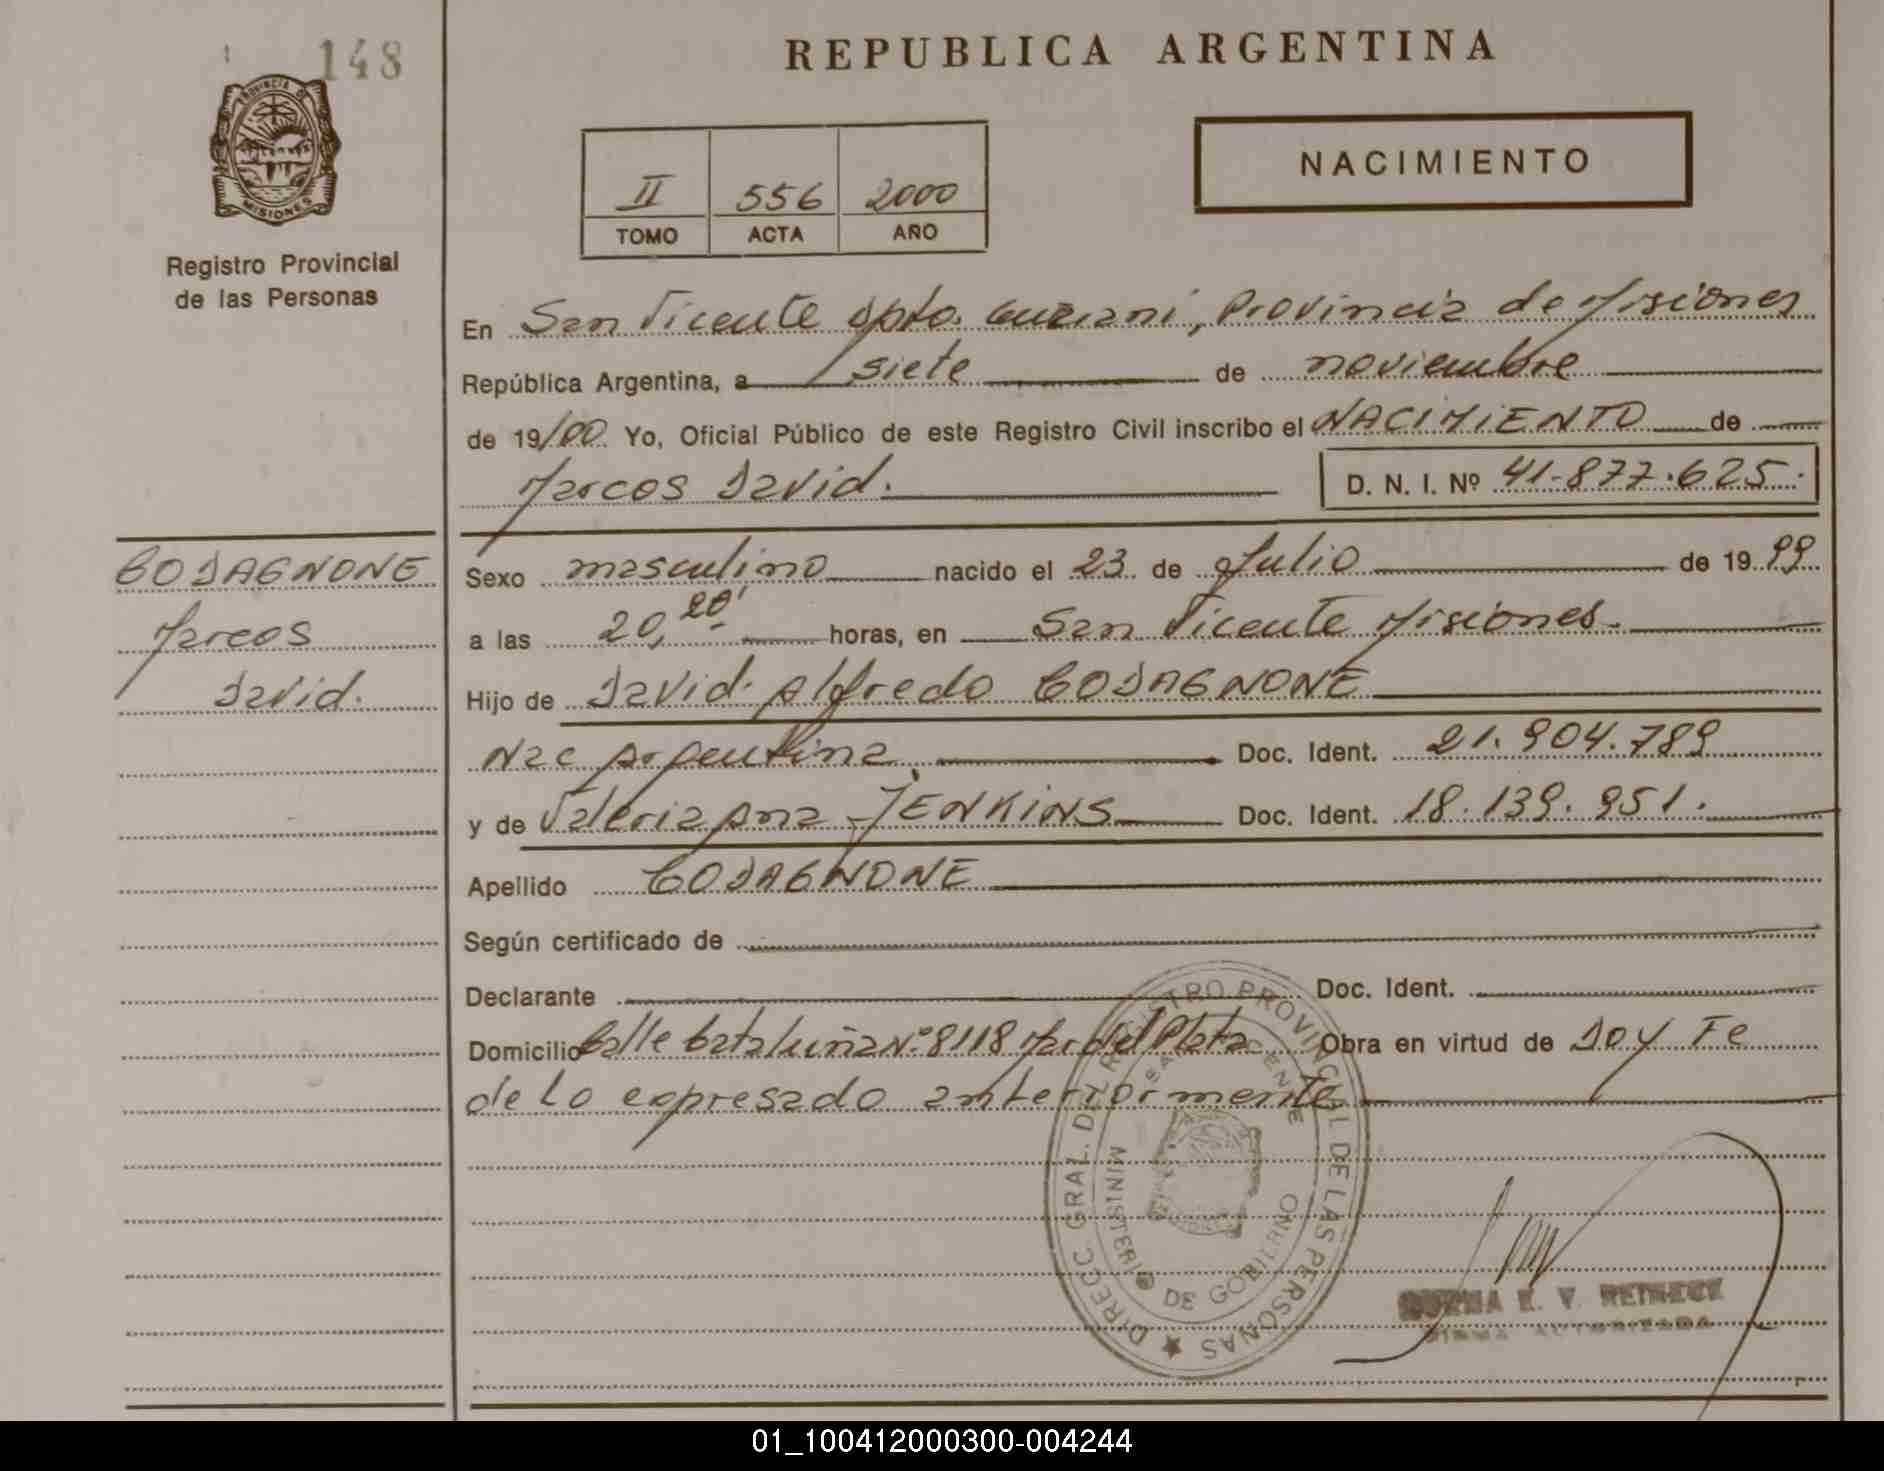 148
REPUBLICA ARGENTINA
PROVINCIA DE
MISIONES
Registro Provincial
de las Personas
NACIMIENTO
II 556 2000
TOMO ACTA AÑO
En San Vicente Dpto. Guarani, Provincia de Misiones
República Argentina, a siete de noviembre
de 19/00 Yo, Oficial Público de este Registro Civil inscribo el NACIMIENTO de
Marcos David. D. N. I. Nº 41.877.625.
CODAGNONE
Marcos
David.
Sexo masculino nacido el 23 de Julio de 1999
a las 20,20' horas, en San Vicente Misiones.
Hijo de David Alfredo CODAGNONE
Nac Argentina Doc. Ident. 21.904.789
y de Valeria Ana JENKINS Doc. Ident. 18.139.951.
Apellido CODAGNONE
Según certificado de
Declarante Doc. Ident.
Domicilio Calle Cataluña Nº 8118 Mar del Plata Obra en virtud de Doy Fe
de lo expresado anteriormente
DIRECC. GRAL. DEL REGISTRO PROVINCIAL DE LAS PERSONAS
SAN VICENTE
MINISTERIO DE GOBIERNO
E. V.
FIRMA AUTORIZADA
01_100412000300-004244